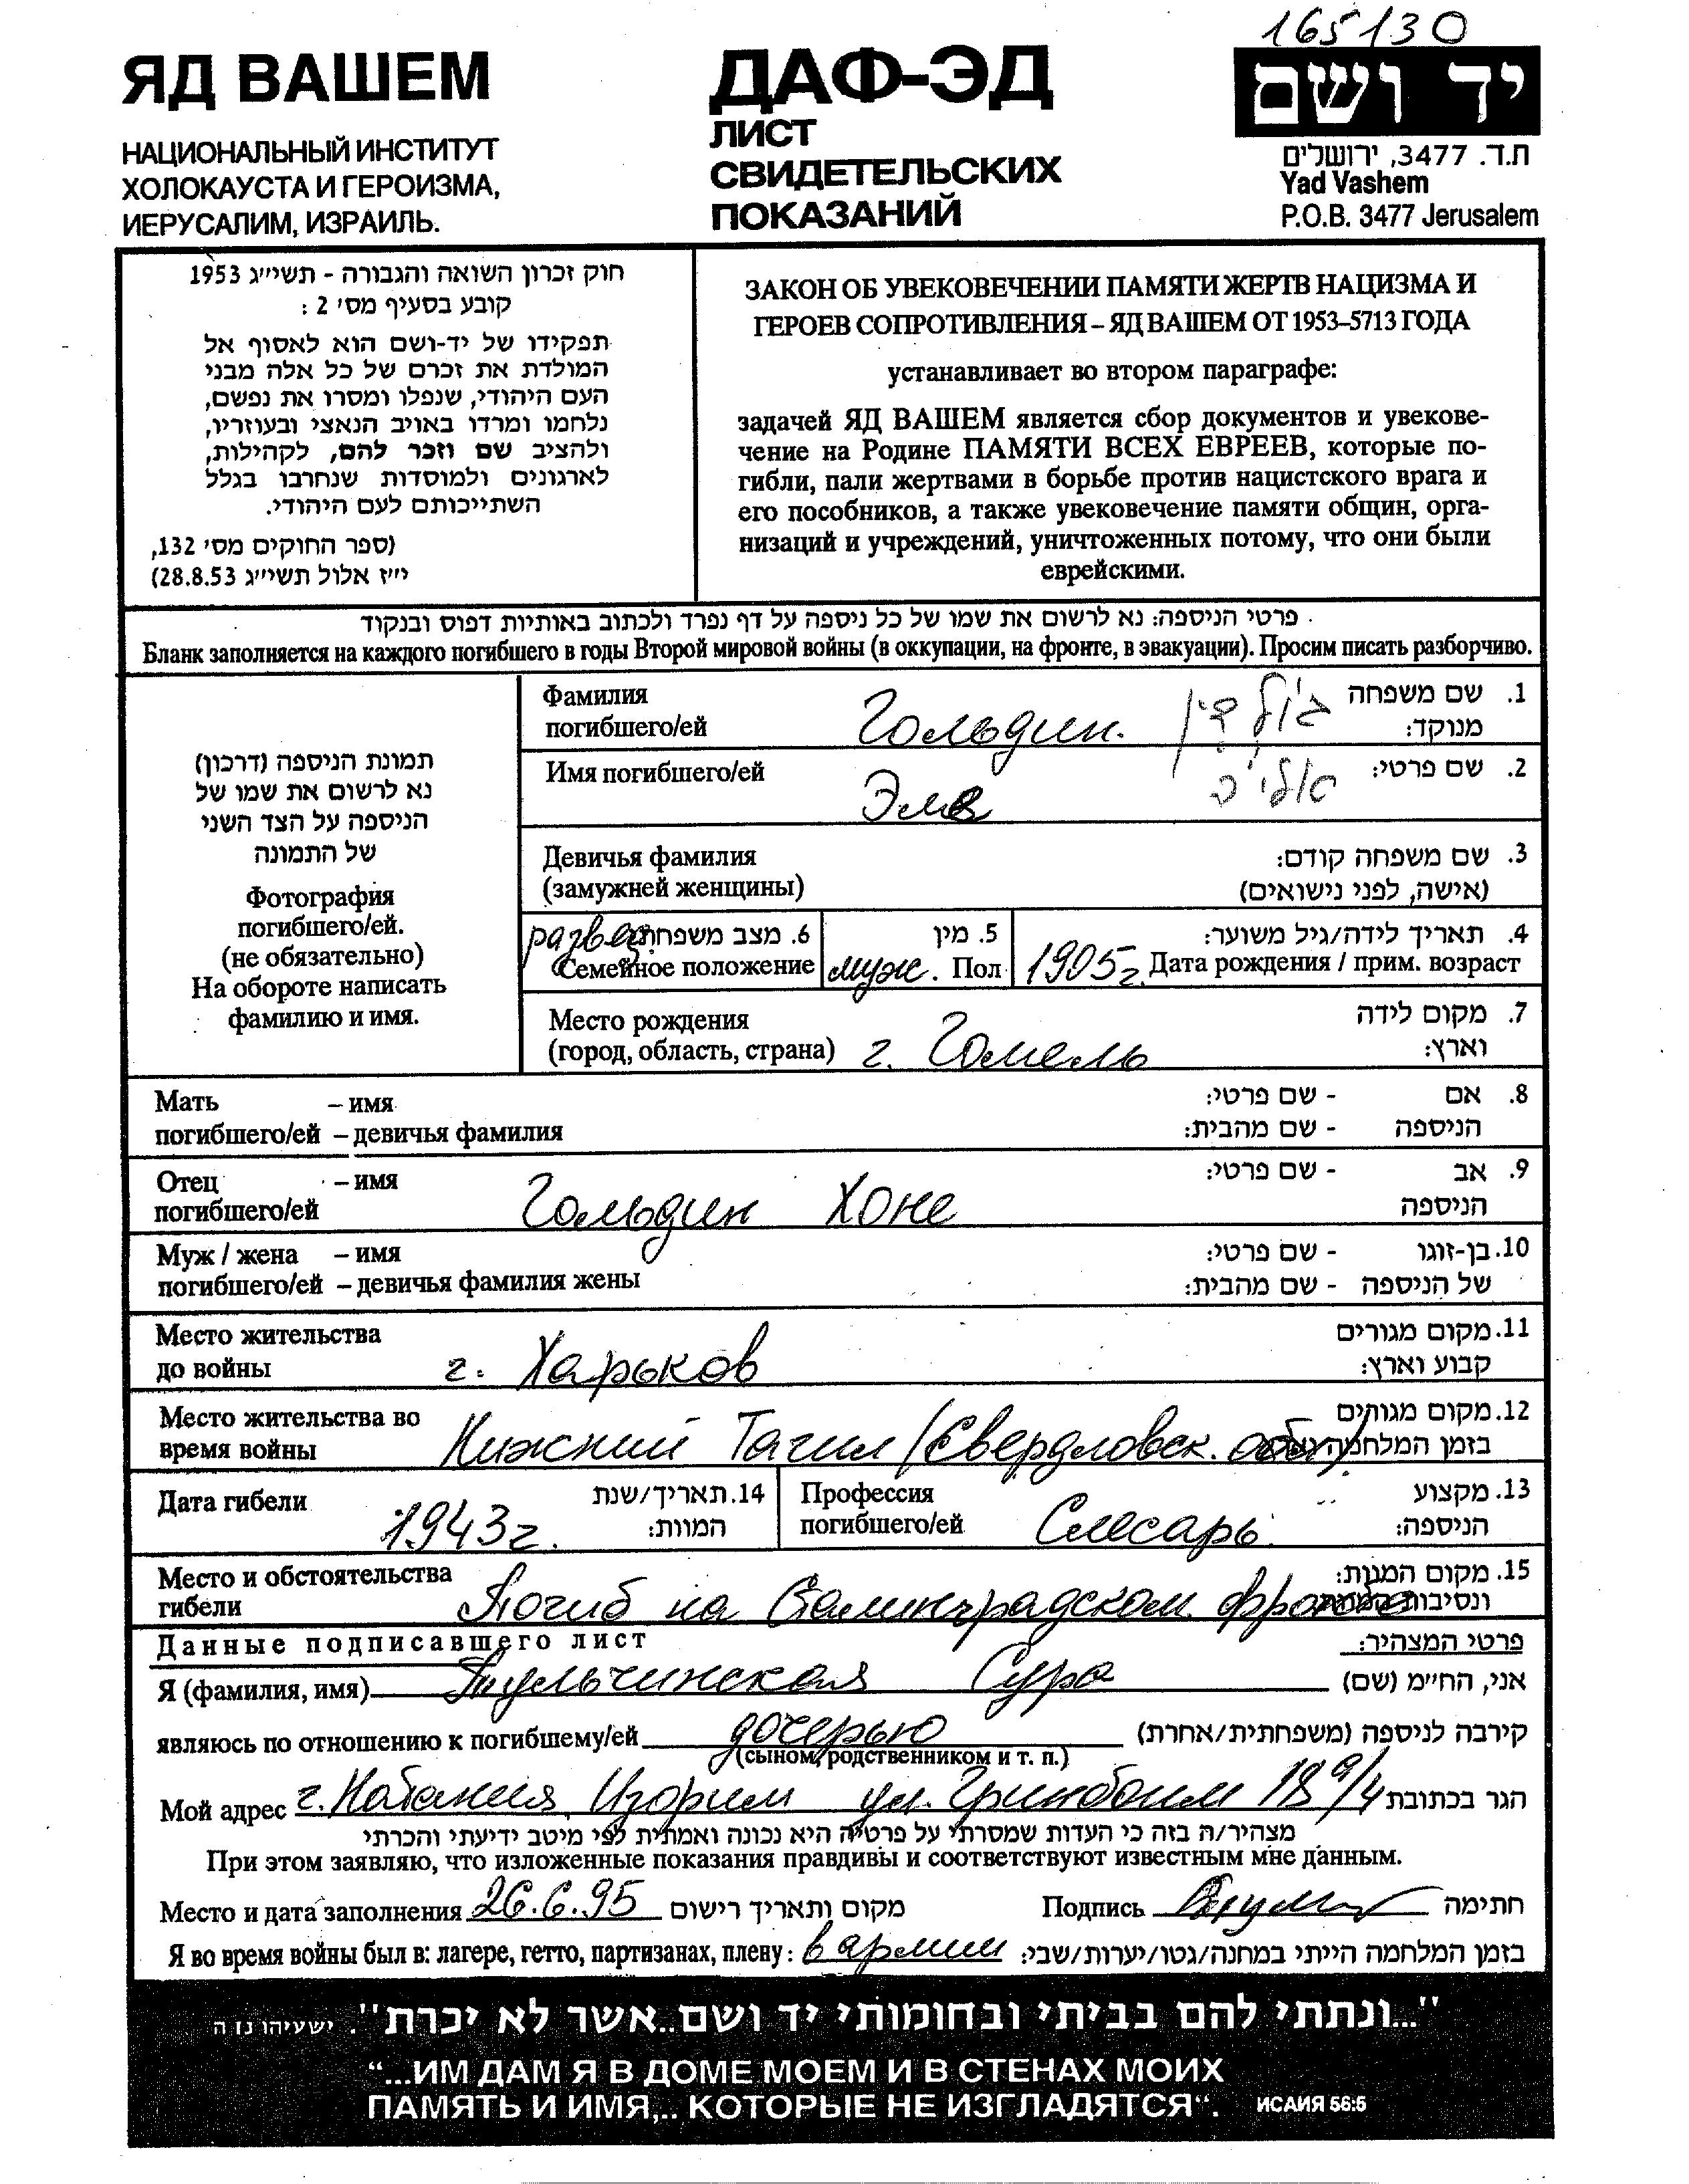 165130
ЯД ВАШЕМ
НАЦИОНАЛЬНЫЙ ИНСТИТУТ
ХОЛОКАУСТА И ГЕРОИЗМА,
ИЕРУСАЛИМ, ИЗРАИЛЬ.
ДАФ-ЭД
ЛИСТ
СВИДЕТЕЛЬСКИХ
ПОКАЗАНИЙ
יד ושם
ת.ד. 3477, ירושלים
Yad Vashem
P.O.B. 3477 Jerusalem
חוק זכרון השואה והגבורה - תשי״ג 1953
קובע בסעיף מס׳ 2 :
תפקידו של יד-ושם הוא לאסוף אל
המולדת את זכרם של כל אלה מבני
העם היהודי, שנפלו ומסרו את נפשם,
נלחמו ומרדו באויב הנאצי ובעוזריו,
ולהציב שם וזכר להם, לקהילות,
לארגונים ולמוסדות שנחרבו בגלל
השתייכותם לעם היהודי.
(ספר החוקים מס׳ 132,
י״ז אלול תשי״ג 28.8.53)
ЗАКОН ОБ УВЕКОВЕЧЕНИИ ПАМЯТИ ЖЕРТВ НАЦИЗМА И
ГЕРОЕВ СОПРОТИВЛЕНИЯ – ЯД ВАШЕМ ОТ 1953–5713 ГОДА
устанавливает во втором параграфе:
задачей ЯД ВАШЕМ является сбор документов и увекове-
чение на Родине ПАМЯТИ ВСЕХ ЕВРЕЕВ, которые по-
гибли, пали жертвами в борьбе против нацистского врага и
его пособников, а также увековечение памяти общин, орга-
низаций и учреждений, уничтоженных потому, что они были
еврейскими.
פרטי הניספה: נא לרשום את שמו של כל ניספה על דף נפרד ולכתוב באותיות דפוס ובנקוד
Бланк заполняется на каждого погибшего в годы Второй мировой войны (в оккупации, на фронте, в эвакуации). Просим писать разборчиво.
תמונת הניספה (דרכון)
נא לרשום את שמו של
הניספה על הצד השני
של התמונה
Фотография
погибшего/ей.
(не обязательно)
На обороте написать
фамилию и имя.
Фамилия שם משפחה .1
погибшего/ей Гольдин. גולדין מנוקד:
Имя погибшего/ей Эля שם פרטי: .2
Девичья фамилия שם משפחה קודם: .3
(замужней женщины) (אישה, לפני נישואים)
развед. מצב משפחתי .6 מין .5 תאריך לידה/גיל משוער: .4
Семейное положение муж. Пол 1905г. Дата рождения / прим. возраст
Место рождения מקום לידה .7
(город, область, страна) г. Гомель וארץ:
Мать – имя - שם פרטי: אם .8
погибшего/ей – девичья фамилия - שם מהבית: הניספה
Отец – имя - שם פרטי: אב .9
погибшего/ей Гольдин Хоне הניספה
Муж / жена – имя - שם פרטי: בן-זוגו .10
погибшего/ей – девичья фамилия жены - שם מהבית: של הניספה
Место жительства מקום מגורים .11
до войны г. Харьков קבוע וארץ:
Место жительства во מקום מגורים .12
время войны Нижний Тагил (Свердловск. обл.) בזמן המלחמה
Дата гибели 1943г. תאריך/שנת .14 המוות:
Профессия מקצוע .13
погибшего/ей Слесарь. הניספה:
Место и обстоятельства מקום המות: .15
гибели Погиб на Сталинградском фронте ונסיבות
Данные подписавшего лист פרטי המצהיר:
Я (фамилия, имя) Тульчинская Сура אני, הח״מ (שם)
являюсь по отношению к погибшему/ей дочерью קירבה לניספה (משפחתית/אחרת)
(сыном, родственником и т. п.)
Мой адрес г. Натания, ул. Гринбоим 18 9/4 הגר בכתובת
מצהיר/ה בזה כי העדות שמסרתי על פרטיה היא נכונה ואמתית לפי מיטב ידיעתי והכרתי
При этом заявляю, что изложенные показания правдивы и соответствуют известным мне данным.
Место и дата заполнения 26.6.95 מקום ותאריך רישום Подпись חתימה
Я во время войны был в: лагере, гетто, партизанах, плену: в армии בזמן המלחמה הייתי במחנה/גטו/יערות/שבי:
"...ונתתי להם בביתי ובחומותי יד ושם..אשר לא יכרת". ישעיהו נו ה
“...ИМ ДАМ Я В ДОМЕ МОЕМ И В СТЕНАХ МОИХ
ПАМЯТЬ И ИМЯ,.. КОТОРЫЕ НЕ ИЗГЛАДЯТСЯ“. ИСАИЯ 56:5